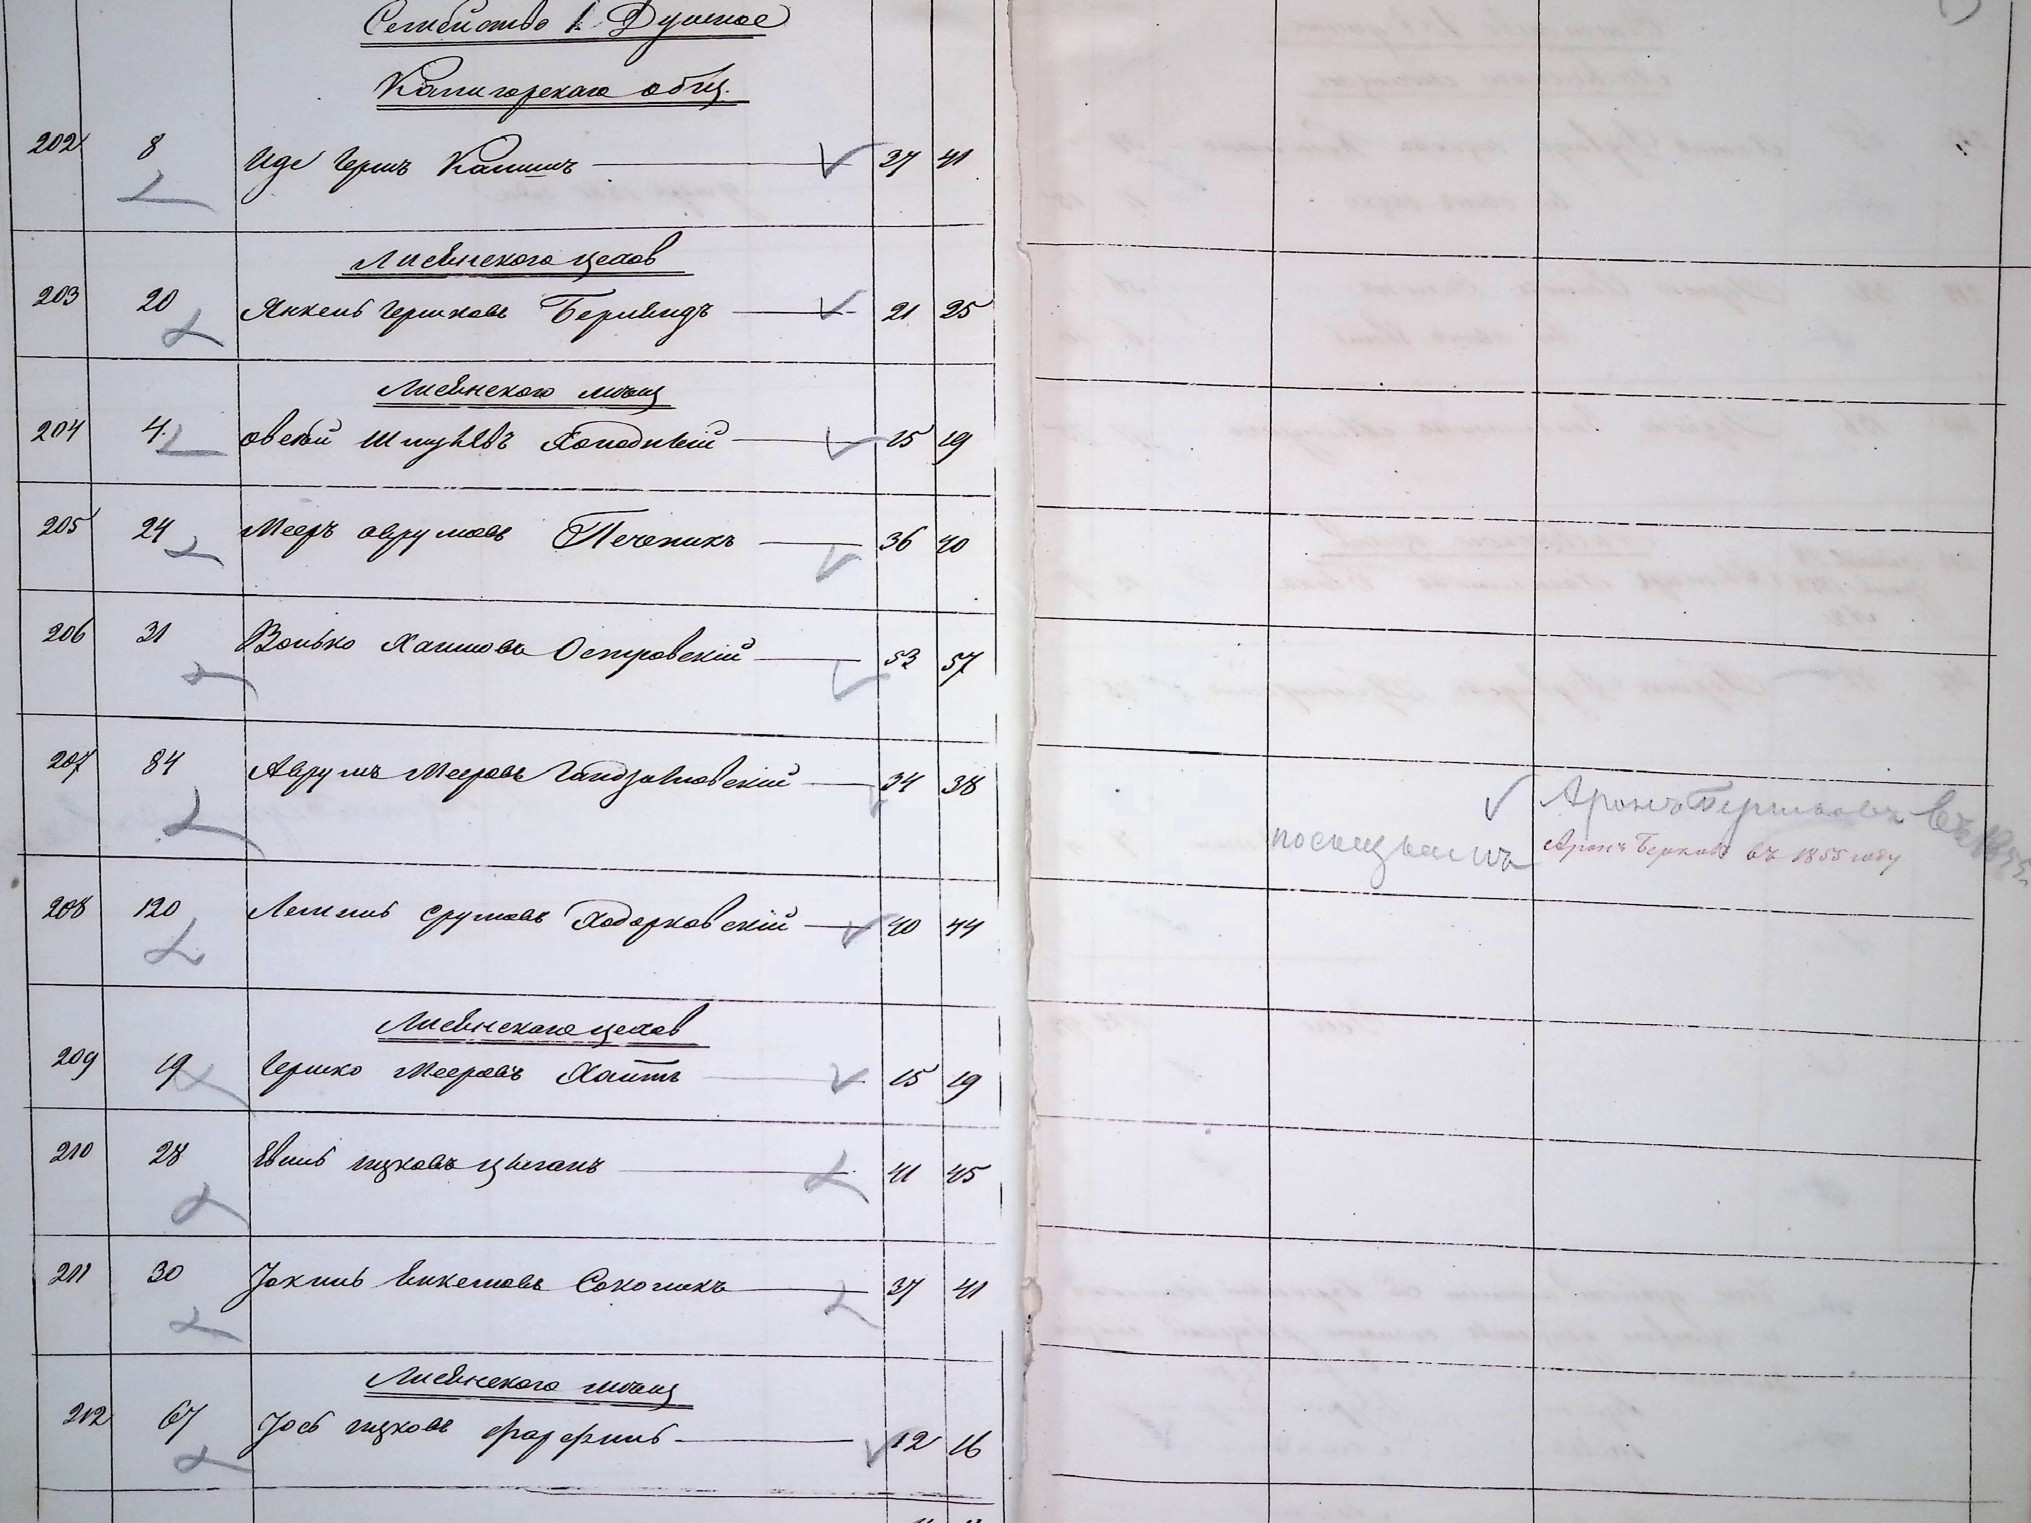 Семейство 1. Душное
Калигорскаго общ.
202 8 Иде Герш Капишъ 37 41
Лисянского цехов
203 20 Янкель Гершковъ Берлендъ 21 25
Лисянского мѣщ
204 4 овсѣй Шмулевъ Холодный 15 19
205 24 Мееръ аврумовъ Печеникъ 36 40
206 31 Волько Хаимовъ Островскій 53 57
207 84 Аврумъ Мееровъ 34 38
Аронъ Берковъ въ 1855
Аронъ Берковъ въ 1855 году
208 120 Лейзиб Срулювъ Ходорковскій 40 44
Лисянского цехов
209 19 Гершко Мееровъ Хаитъ 15 19
210 28 Евель ицковъ Цыганъ 41 45
211 30 Енкелювъ Соколикъ 37 41
Лисянского мѣщ
212 67 Іось ицковъ 12 16